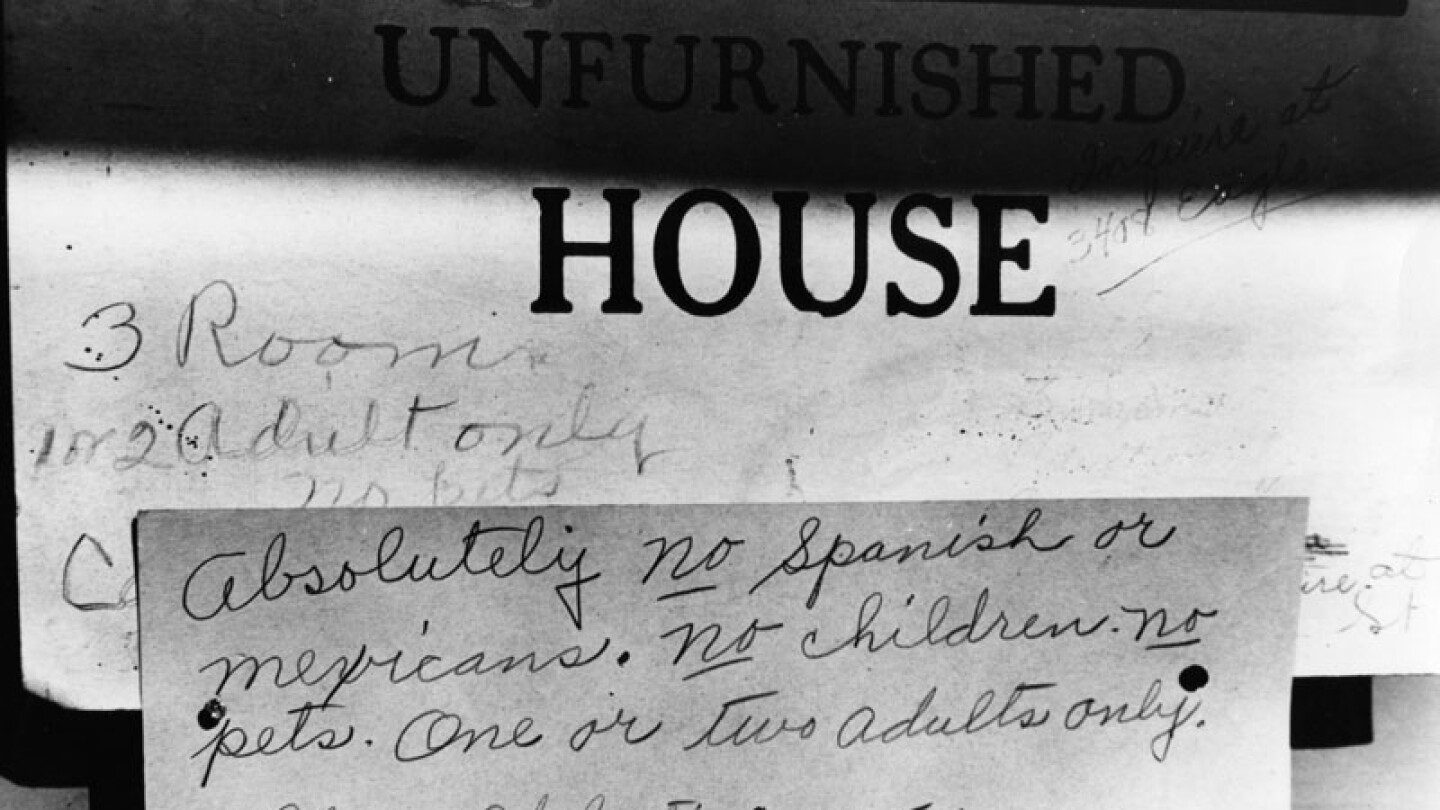 UNFURNISHED
Inquire at
3408 Eagle
HOUSE
3 Room
1 or 2 Adult only
no pets
Absolutely no Spanish or
mexicans. no children. no
pets. One or two adults only.
at
St